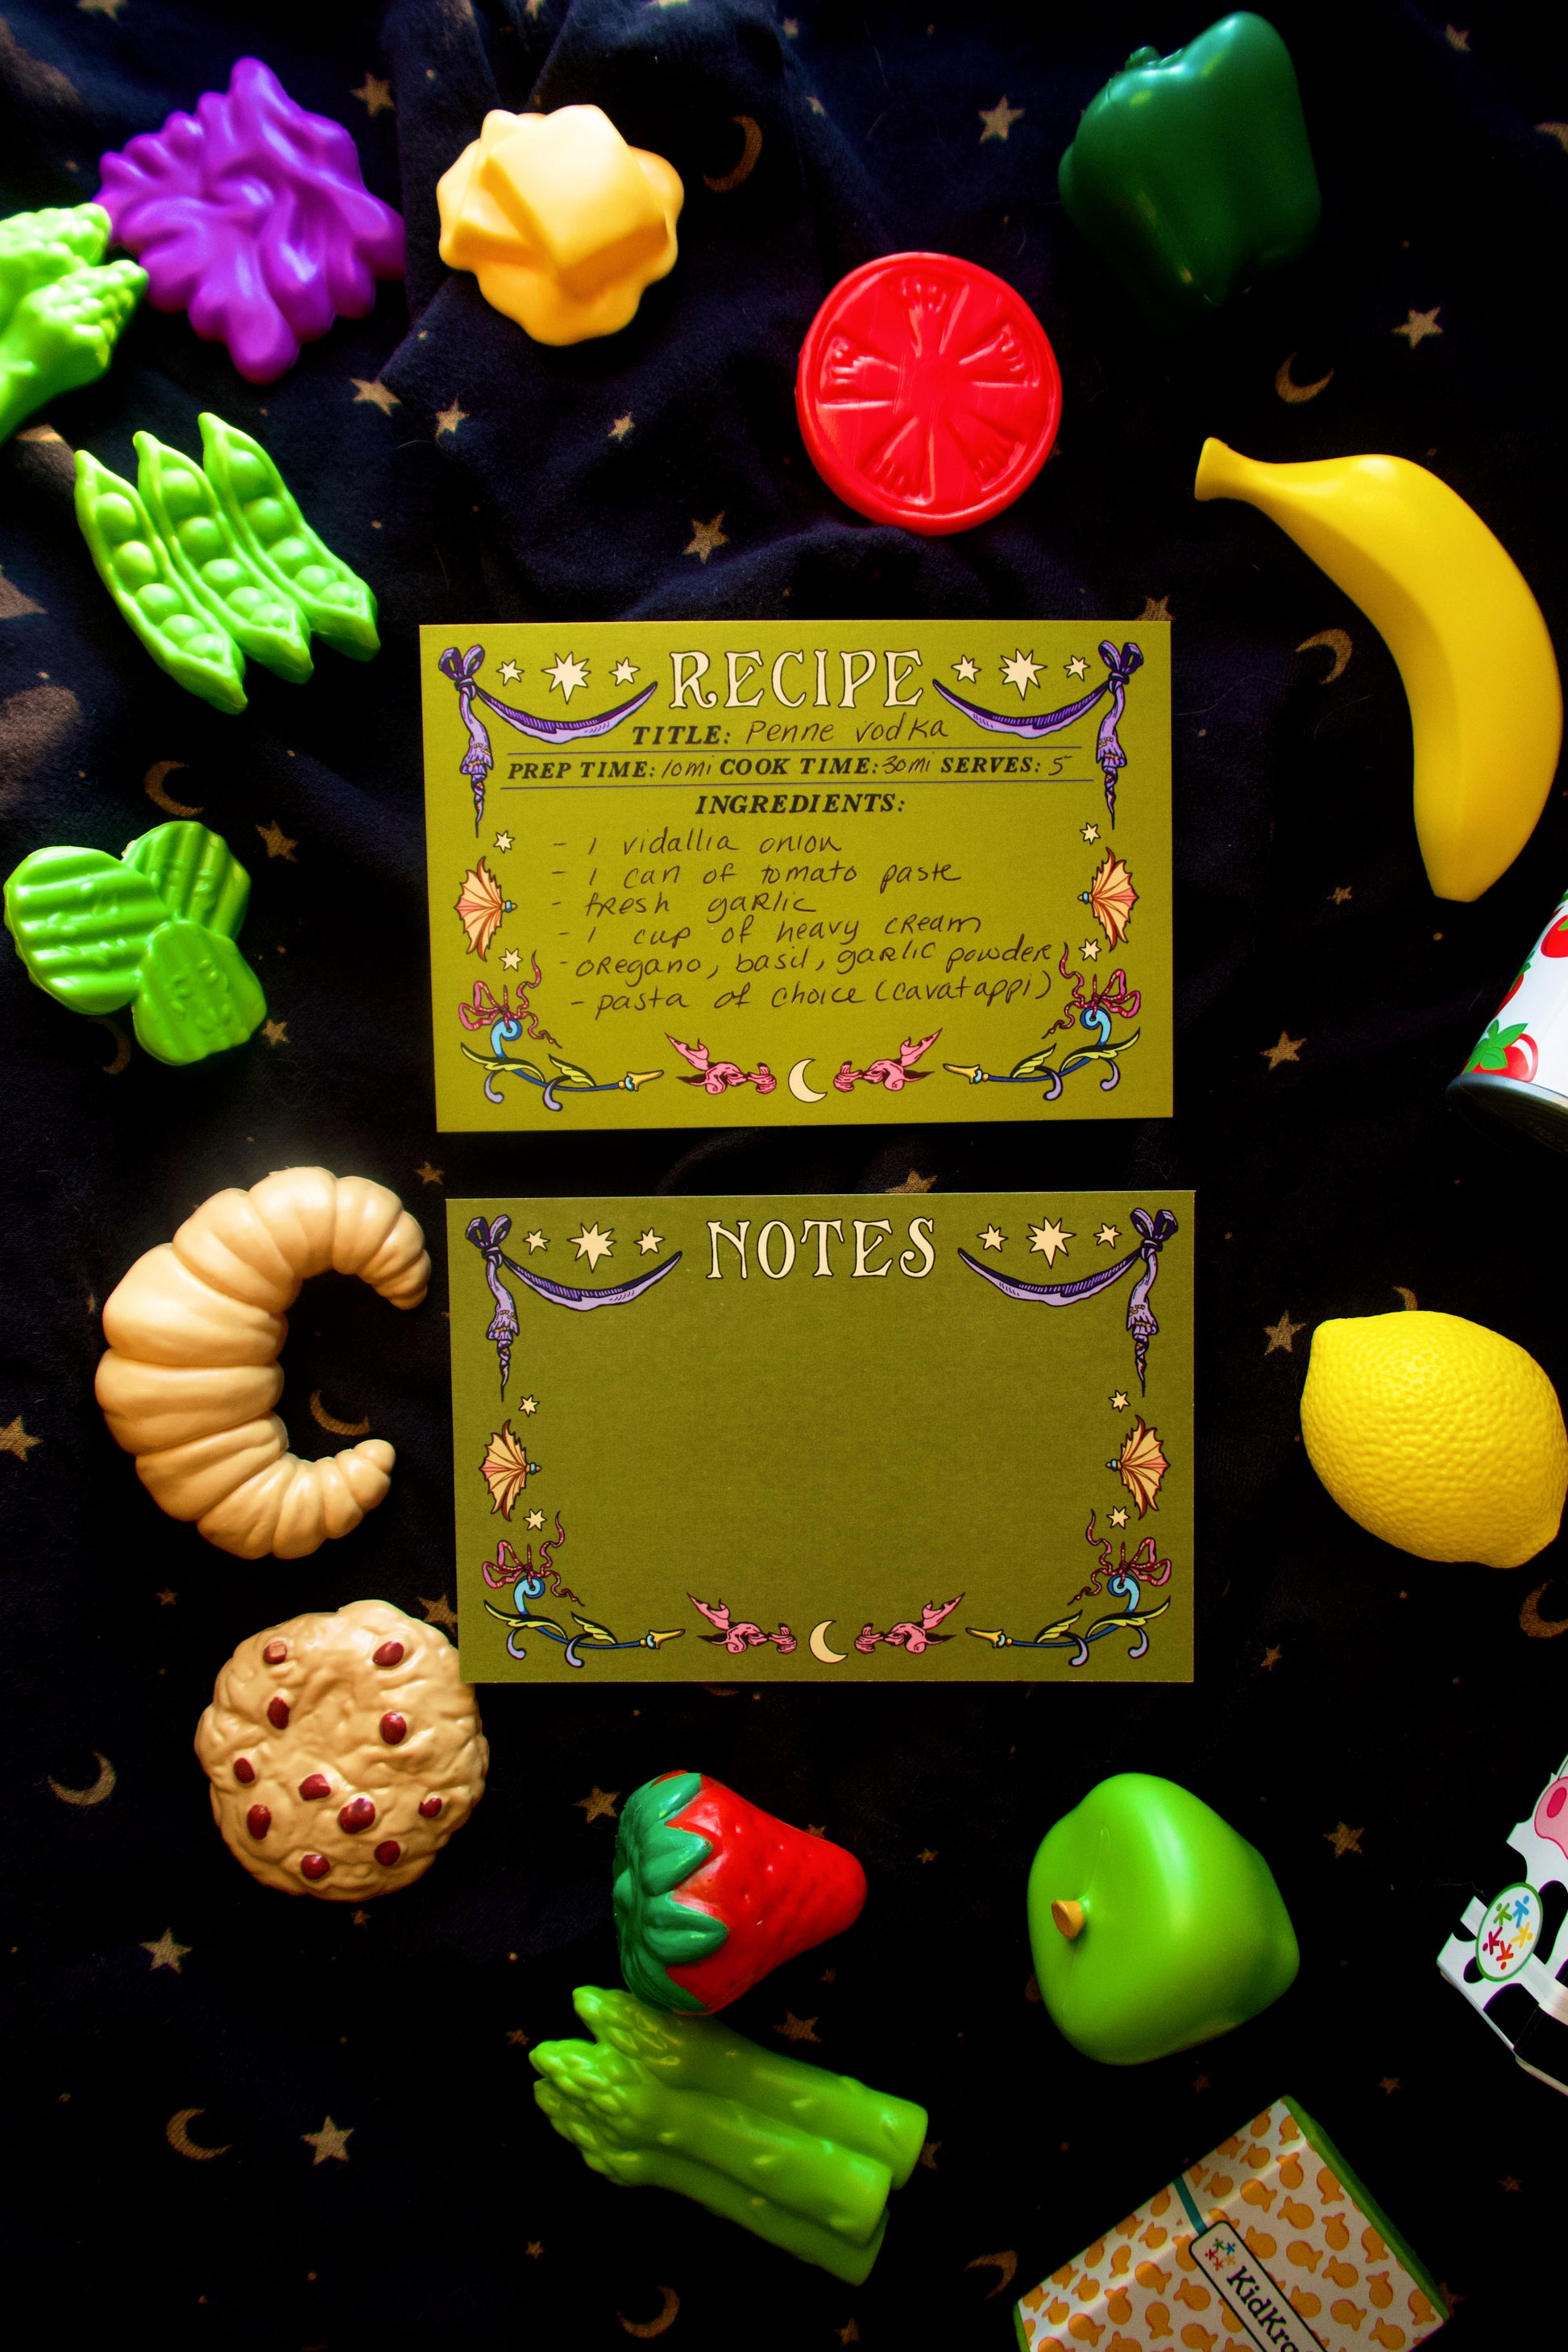 RECIPE
TITLE: Penne vodka
PREP TIME: 10mi COOK TIME: 30mi SERVES: 5
INGREDIENTS:
- 1 vidallia onion
- 1 can of tomato paste
- fresh garlic
- 1 cup of heavy cream
- oregano, basil, garlic powder
- pasta of choice (cavatappi)
NOTES
KidKra